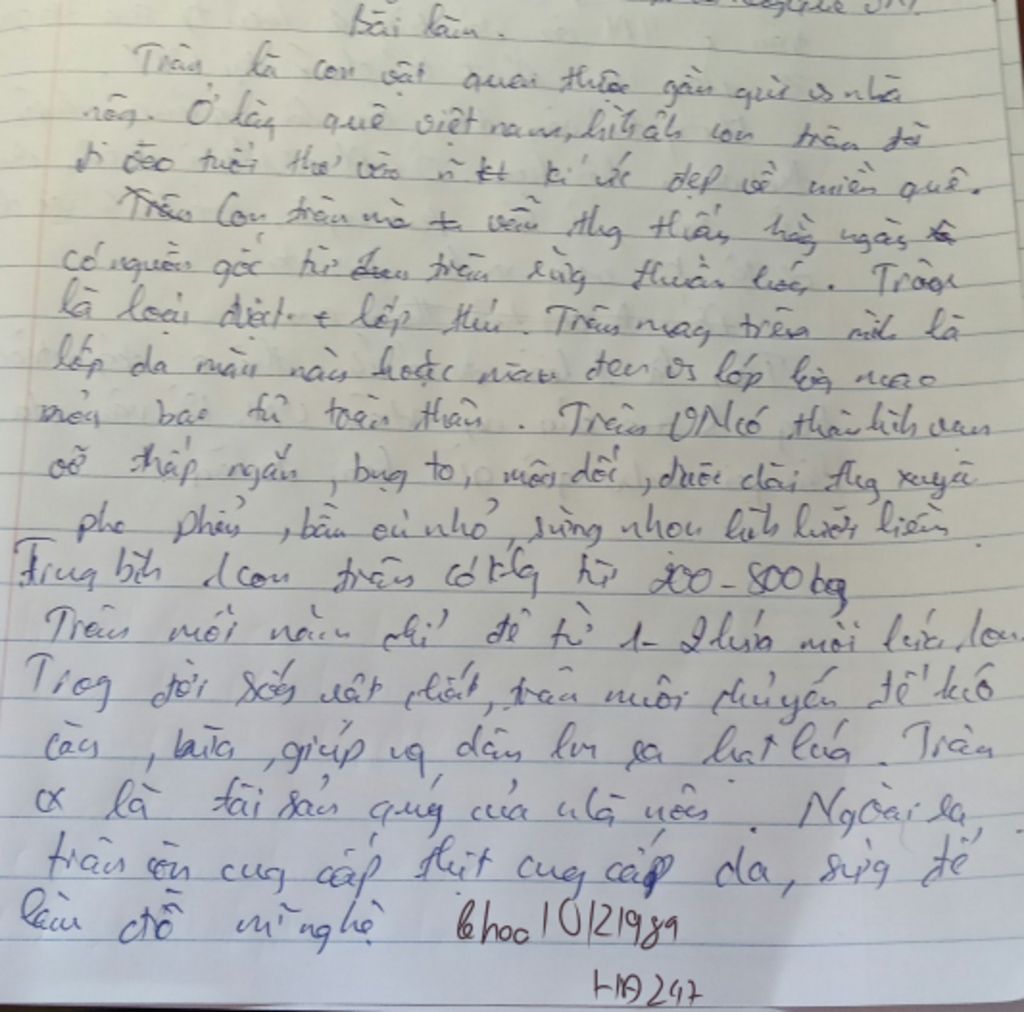 bài làm.
Trâu là con vật quen thuộc gần gũi vs nhà
nông. Ở làng quê việt nam, hình ảnh con trâu đã
đi vào tuổi thơ vào kí ức đẹp về miền quê.
Con trâu mà vẫn thg thấy hằng ngày
có nguồn gốc từ trâu rừng thuần hoá. Trâu
là loài đvật lớp thú. Trâu mag trên mình là
lớp da màu nâu hoặc màu đen vs lớp lông mao
mỏng bao từ toàn thân. Trâu VN có thân hình
thấp ngắn, bụg to, mông dốc, đuôi dài thg xuyên
phe phẩy, bầu vú nhỏ, sừng nhọn hình lưỡi liềm
Trug bình 1 con trâu có klg từ 200-800kg
Trâu mỗi năm chỉ đẻ từ 1-2 lứa mỗi lứa 1 con.
Trog đời sống vật chất, trâu nuôi chủ yếu để kéo
cày, bừa, giúp ng dân làm ra hạt lúa. Trâu
cx là tài sản quý của nhà nông. Ngoài ra,
trâu còn cug cấp thịt cug cấp da, sừng để
làm đồ mĩ nghệ khoo10121989
HĐ247